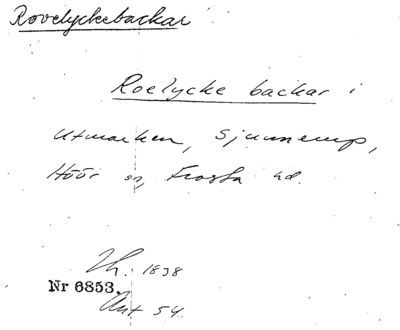 Rovelyckebackar
Roelycke backar i
utmarken, Sjunnerup,
Höör sn, Frosta hd.
Lh. 1838
Nr 6853.
Ant 54.